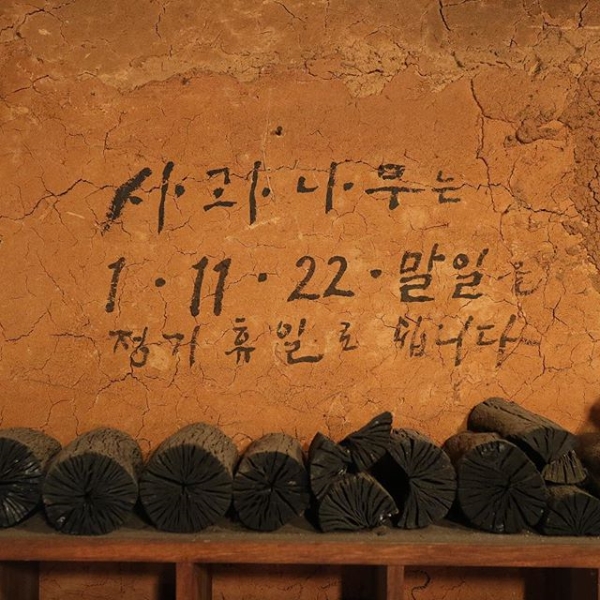 사과나무는
1·11·22·말일을
정기휴일로 쉽니다